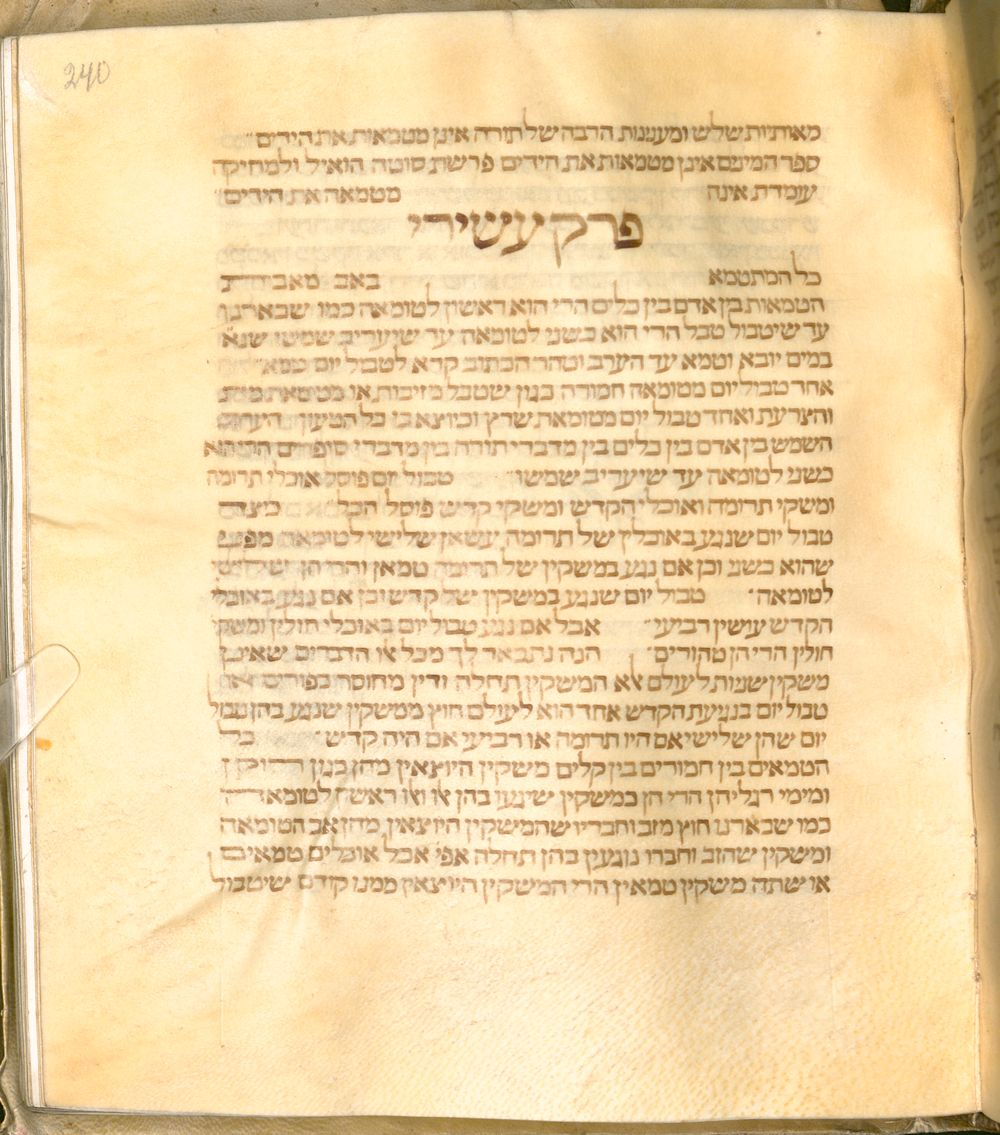 240
מאותיות שלש ומעננות הרבה של תורה אינן מטמאות את הידים
ספר המינים אינן מטמאות את הידים פרשת סוטה הואיל ולמחיקה
עומדת אינה מטמאה את הידים
פרק עשירי
כל המתטמא באב מאבות
הטמאות בין אדם בין כלים הרי הוא ראשון לטומאה כמו שבארנו
עד שיטבול טבל הרי הוא כשני לטומאה עד שיעריב שמשו שנא'
במים יובא וטמא עד הערב וטהר הכתוב קרא לטבול יום טמא
אחד טבול יום מטומאה חמורה כגון שטבל מזיבות או מטמאת מת
והצרעת ואחד טבול יום מטומאת שרץ וכיוצא בו כל הטעון הערב
השמש בין אדם בין כלים בין מדברי תורה בין מדברי סופרים הרי הוא
כשני לטומאה עד שיעריב שמשו טבול יום פוסל אוכלי תרומה
ומשקי תרומה ואוכלי הקדש ומשקי קדש פוסל הכל כיצד
טבול יום שנגע באוכלין של תרומה עשאן שלישי לטומאה מפני
שהוא כשני וכן אם נגע במשקין של תרומה טמאן והרי הן שלישי
לטומאה טבול יום שנגע במשקין של קדש וכן אם נגע באוכלי
הקדש עושין רביעי אבל אם נגע טבול יום באוכלי חולין ומשקי
חולין הרי הן טהורים הנה נתבאר לך מכל אלו הדברים שאין
משקין שניות לעולם אלא המשקין תחלה ודין מחוסר כפורים ודין
טבול יום בנגיעת הקדש אחד הוא לעולם חוץ ממשקין שנגע בהן טבול
יום שהן שלישי אם היו תרומה או רביעי אם היה קדש כל
הטמאים בין חמורים בין קלים משקין היוצאין מהן כגון
ומימי רגליהן הרי הן כמשקין שיגעו בהן אלו ואלו ראשון לטומאה
כמו שבארנו חוץ מזב וחבריו שהמשקין היוצאין מהן אב הטומאה
ומשקין שהזב וחברו נוגעין בהן תחלה אפי' אכל אוכלים טמאים
או שתה משקין טמאין הרי המשקין היוצאין ממנו קודם שיטבול